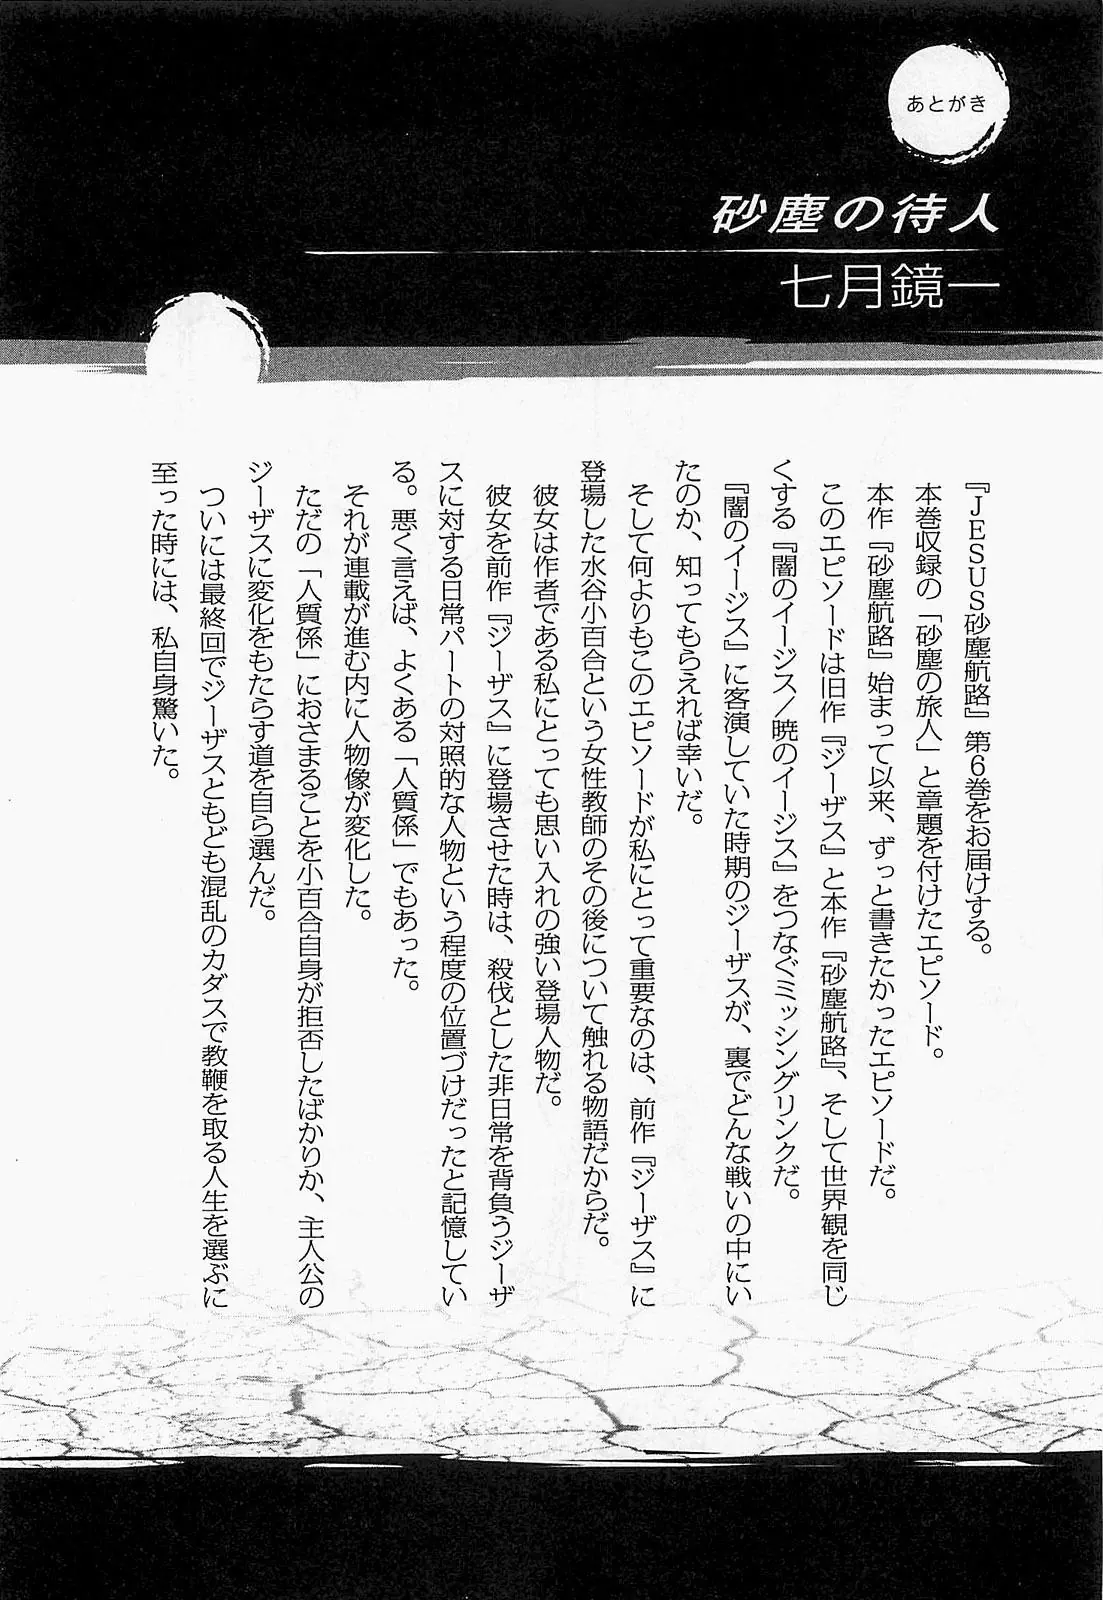 あとがき
砂塵の待人
七月鏡一
『JESUS砂塵航路』第6巻をお届けする。
本巻収録の「砂塵の旅人」と章題を付けたエピソード。
本作『砂塵航路』始まって以来、ずっと書きたかったエピソードだ。
このエピソードは旧作『ジーザス』と本作『砂塵航路』、そして世界観を同じ
くする『闇のイージス／暁のイージス』をつなぐミッシングリンクだ。
『闇のイージス』に客演していた時期のジーザスが、裏でどんな戦いの中にい
たのか、知ってもらえれば幸いだ。
そして何よりもこのエピソードが私にとって重要なのは、前作『ジーザス』に
登場した水谷小百合という女性教師のその後について触れる物語だからだ。
彼女は作者である私にとっても思い入れの強い登場人物だ。
彼女を前作『ジーザス』に登場させた時は、殺伐とした非日常を背負うジーザ
スに対する日常パートの対照的な人物という程度の位置づけだったと記憶してい
る。悪く言えば、よくある「人質係」でもあった。
それが連載が進む内に人物像が変化した。
ただの「人質係」におさまることを小百合自身が拒否したばかりか、主人公の
ジーザスに変化をもたらす道を自ら選んだ。
ついには最終回でジーザスともども混乱のカダスで教鞭を取る人生を選ぶに
至った時には、私自身驚いた。